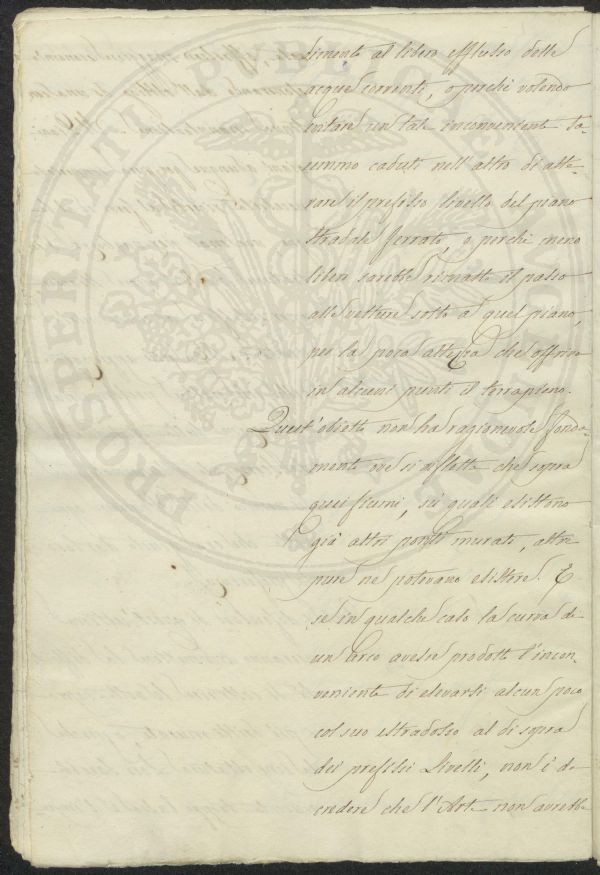 dimento al libero efflusso delle
acque correnti, o perchè volendo
evitare un tale inconveniente sa-
remmo caduti nell'altro di alte-
rare il prefisso livello del piano
stradale ferrato, o perchè meno
libero sarebbe rimasto il passo
alle vetture sotto a quel piano,
per la poca altezza che offriva
in alcuni punti il terrapieno.
Quest'obietto non ha ragionevole fonda-
mento ove si rifletta che sopra
quei fiumi, su quali esistono
già altri ponti murati, altri
pure ne potevano esistere. E
se in qualche caso la curva di
un Arco avesse prodotto l'incon-
veniente di elevarsi alcun poco
col suo estradosso al di sopra
dei prefissi Livelli, non è da
credere che l'Arte non avrebbe
PROSPERITATI PUBLICAE